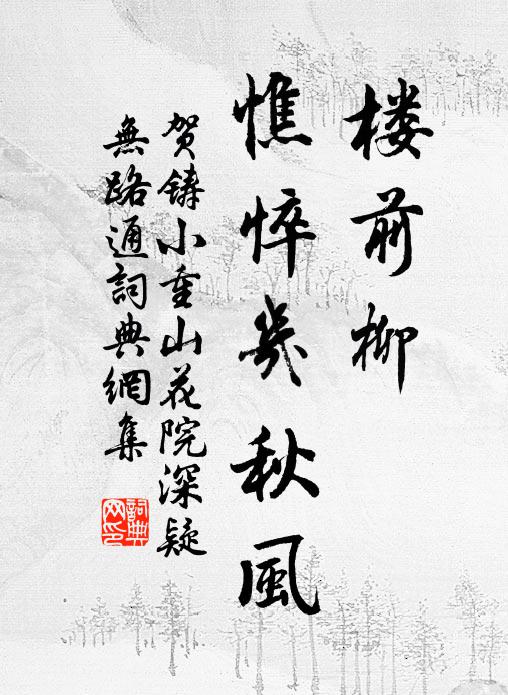 楼前柳
憔悴幾秋風
贺鑄小重山花院深疑
無路通詞典網集
詞典
网印